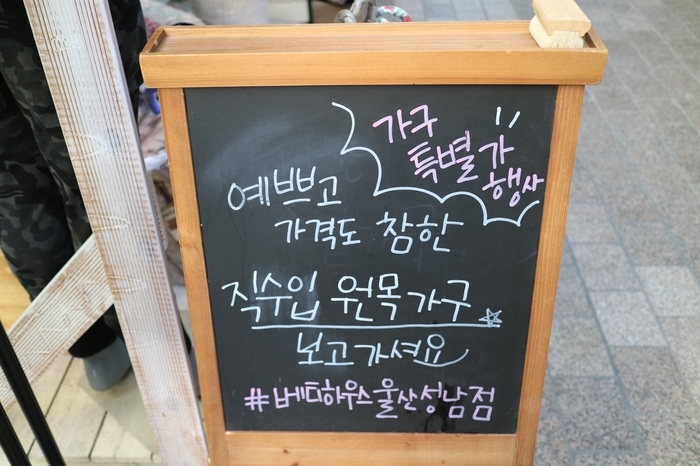 가구
특별가
행사
예쁘고
가격도 참한
직수입 원목가구
보고가셔요
#베티하우스울산성남점